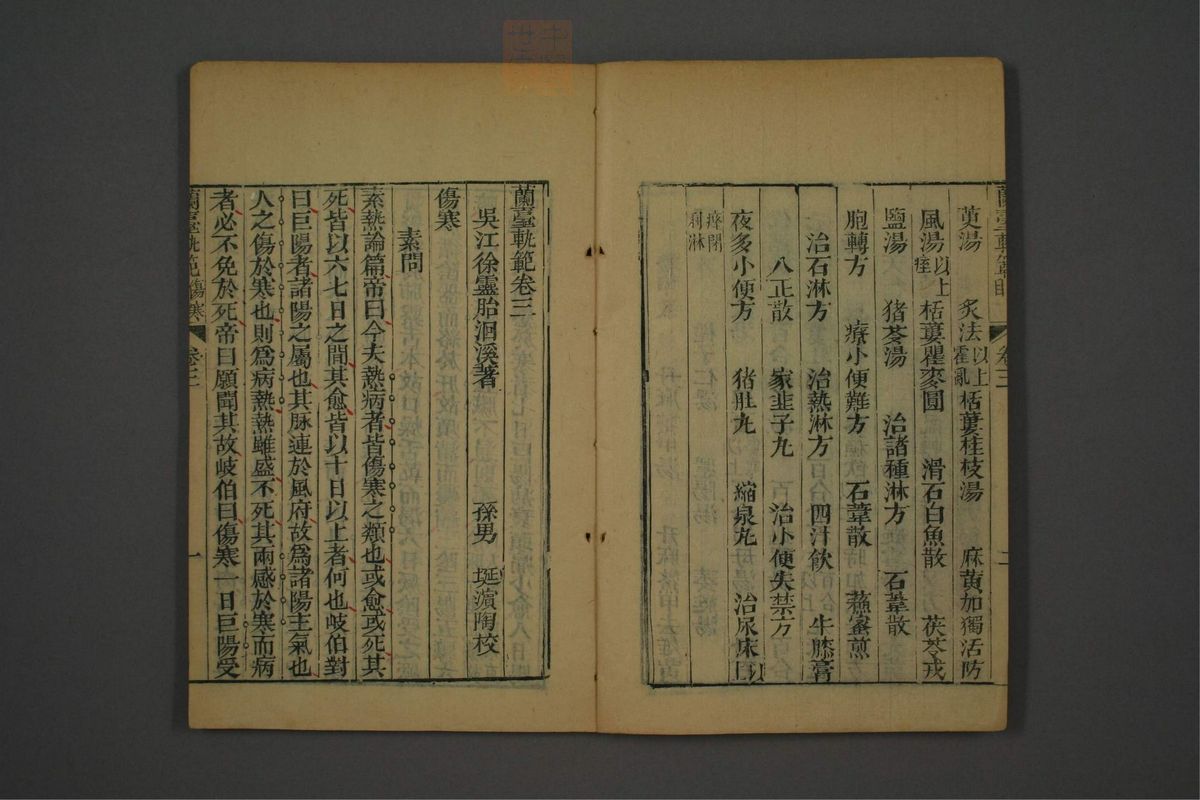 蘭臺軌範目 卷三 二
茰湯 炙法 以上霍亂 栝蔞桂枝湯 麻黃加獨活防
風湯 以上痓 栝蔞瞿麥圓 滑石白魚散 茯苓戎
鹽湯 猪苓湯 治諸種淋方 石葦散
胞轉方 療小便難方 石葦散 蘓蜜煎
治石淋方 治熱淋方 四汁飲 牛膝膏
八正散 家韭子丸 治小便失禁方
夜多小便方 猪肚丸 縮泉丸 治尿床 以上
癃閉利淋
蘭臺軌範卷三
吳江徐靈胎洄溪著 孫男 埏濱陶校
傷寒
素問
素熱論篇帝曰今夫熱病者皆傷寒之類也或愈或死其
死皆以六七日之間其愈皆以十日以上者何也岐伯對
曰巨陽者諸陽之屬也其脉連於風府故爲諸陽主氣也
人之傷於寒也則爲病熱熱雖盛不死其兩感於寒而病
者必不免於死帝曰願聞其故岐伯曰傷寒一日巨陽受
蘭臺軌範傷寒 卷三 一